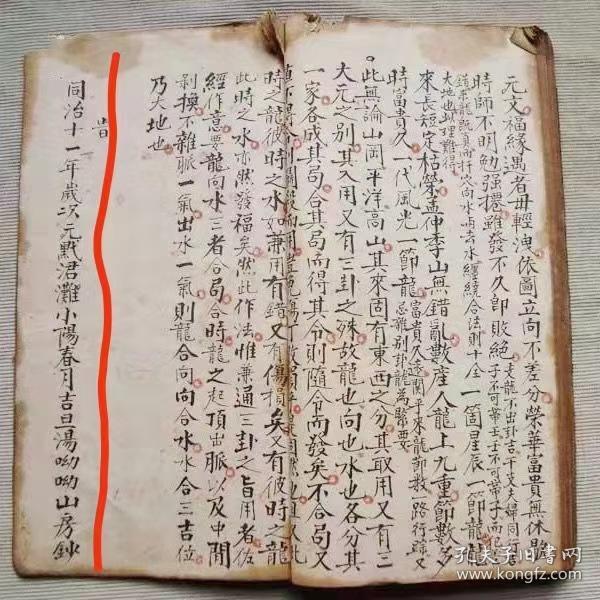 元文福緣遇者毋輕洩依圖立向不差分榮華富貴無休歇
時師不明勉强遷雖發不久即敗絕
來長短定枯榮孟仲季山無錯亂數產人龍上九重節數多
時富貴久一代風光一節龍
此無論山岡平洋高山其來固有東西之分其取用又有三
大元之别其入用又有三卦之殊故龍也向也水也各分其
一家各成其局合其局而得其令則隨令而發矣不合局又
時之龍彼時之水如兼用有錯又有傷損矣又有彼時之龍
此時之水亦然發福矣然此作法惟兼通三卦之旨用者佐
經作意要龍向水三者合局合時龍之起頂出脈以及中間
剥換不雜脈一氣出水一氣則龍合向向合水水合三吉位
乃大地也
旹
同治十一年歲次元黓君灘小陽春月吉旦湯呦呦山房鈔
孔夫子旧书网
www.kongfz.com